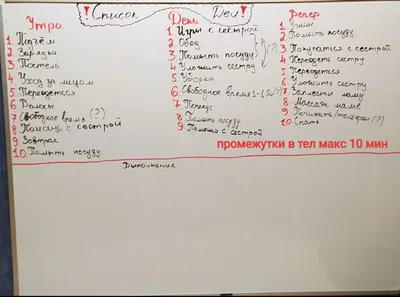 Список Дел!
Утро
1 Подъём
2 Зарядка
3 Постель
4 Уход за лицом
5 Переодется
6 Волосы
7 Свободное время (?)
8 Помощь с сестрой
9 Завтрак
10 Помыть посуду
День
1 Игры с сестрой
2 Обед
3 Помыть посуду
4 Уложить сестру
(?)
5 Уборка
6 Свободное время (?)
7 Перекус
8 Помыть посуду
9 Помощь с сестрой
Вечер
1 Ужин
2 Помыть посуду
3 Покупатся с сестрой
4 Переодеть сестру
5 Переодется
6 Уложить сестру
7 Заплести маму
8 Массаж маме
9 Почитать/телефон (?)
10 Спать
промежутки в тел макс 10 мин
Выполнение